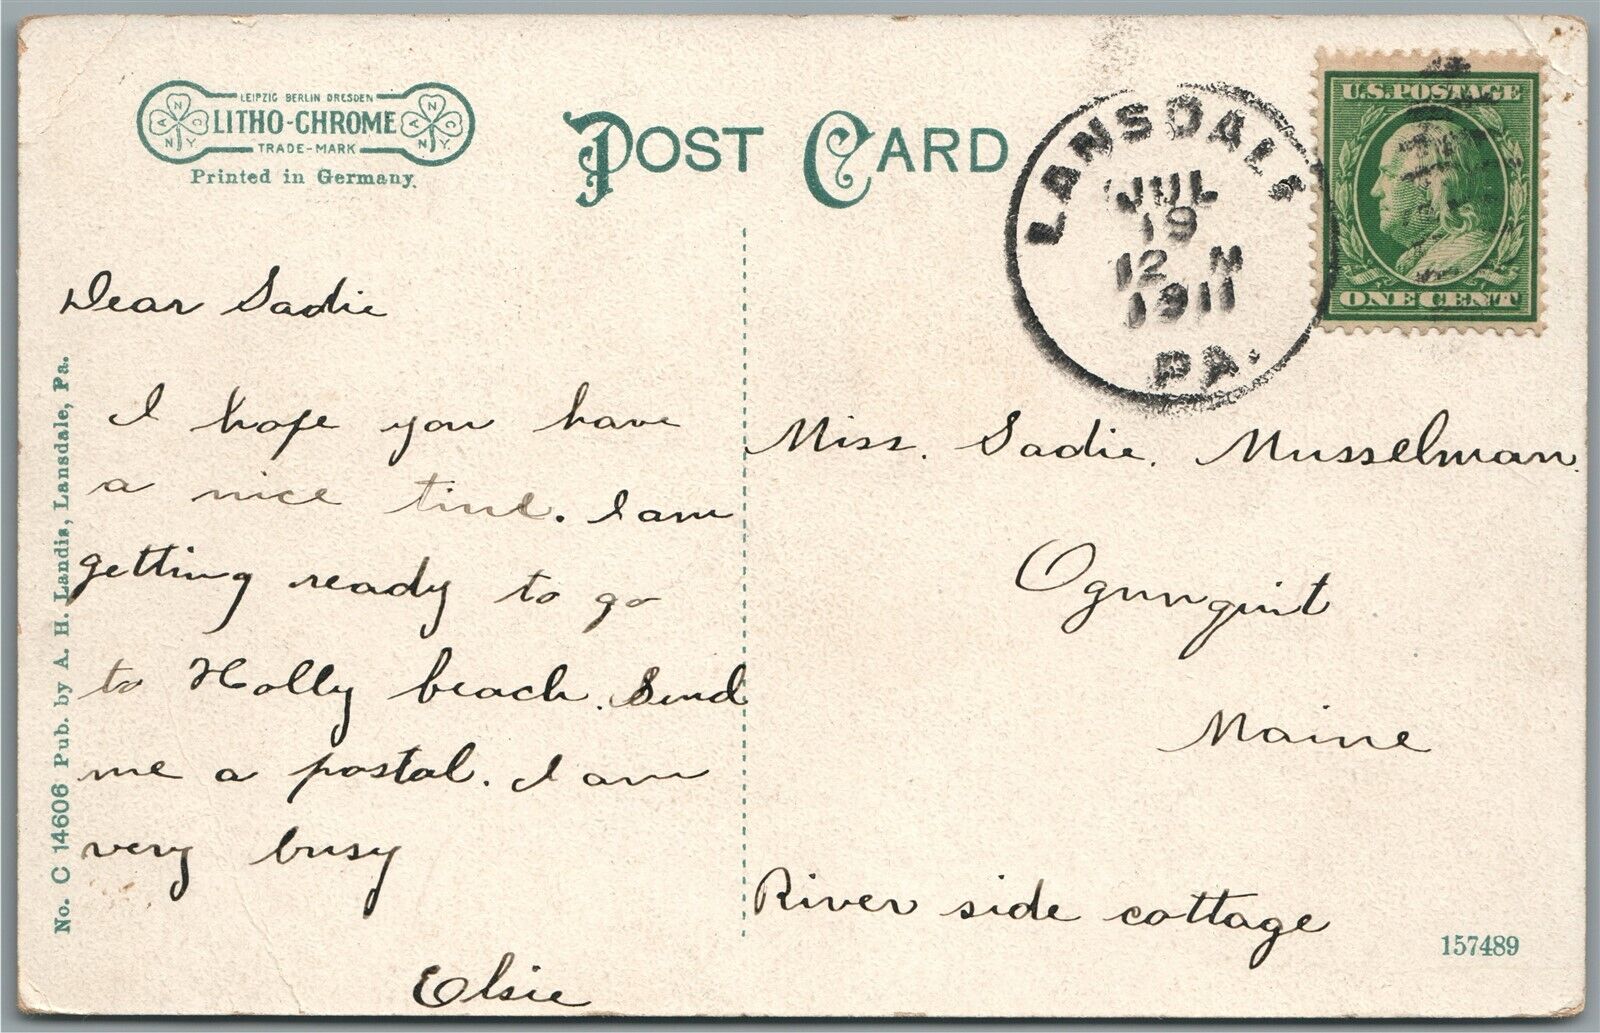 LEIPZIG BERLIN DRESDEN
LITHO-CHROME
TRADE-MARK
Printed in Germany.
POST CARD
LANSDALE
JUL
19
12 M
1911
PA.
U.S. POSTAGE
ONE CENT
Dear Sadie
I hope you have
a nice time. I am
getting ready to go
to Holly beach. Send
me a postal. I am
very busy
Elsie
Miss. Sadie. Musselman.
Ogunquit
Maine
River side cottage
No. C 14606 Pub. by A. H. Landis, Lansdale, Pa.
157489